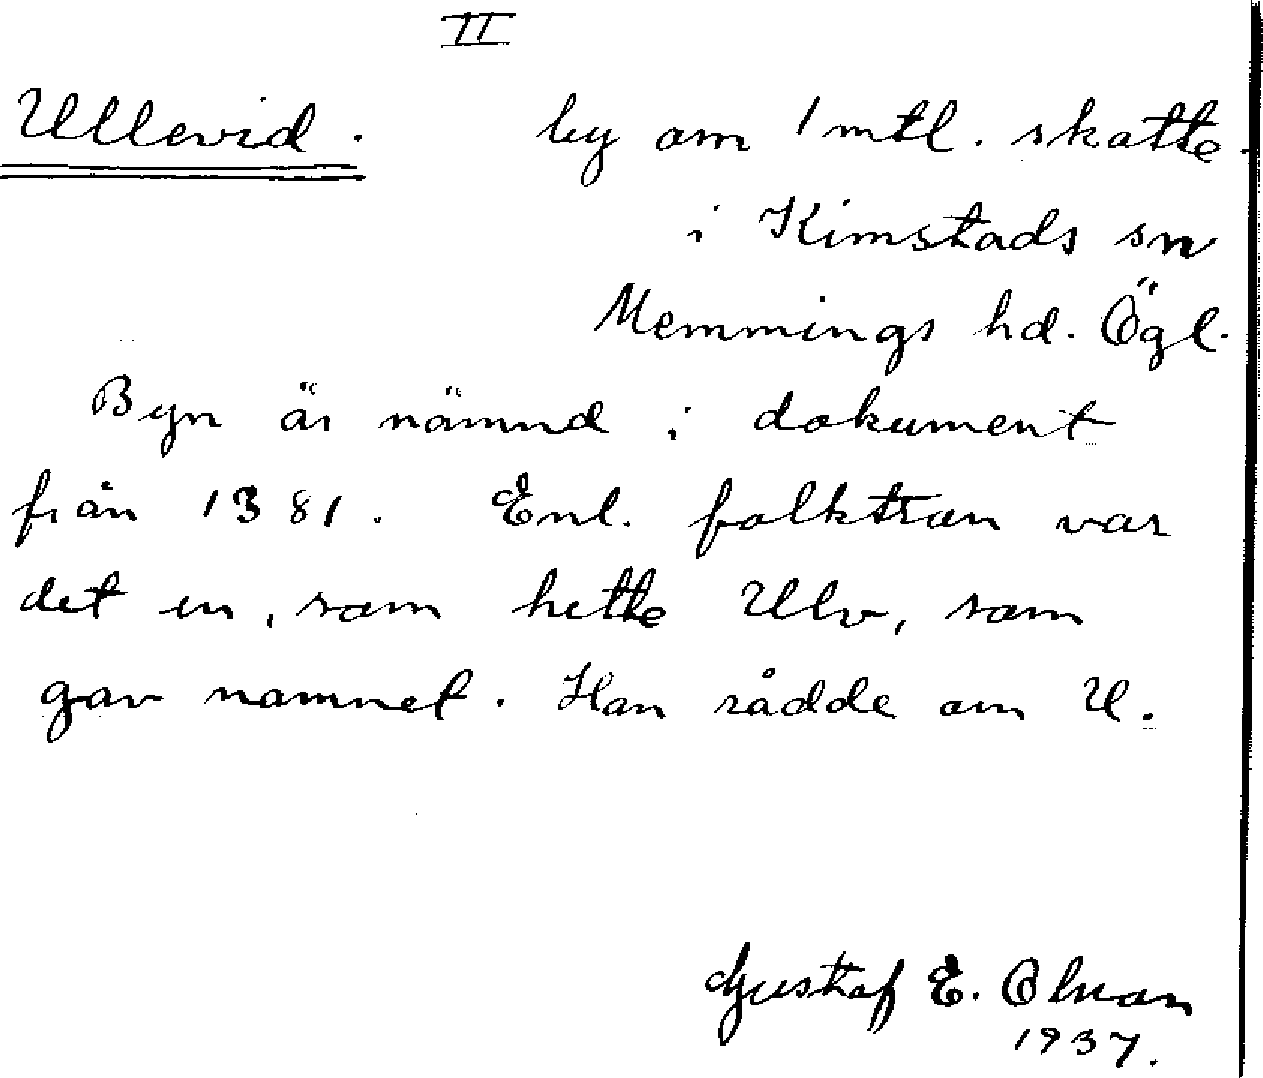 II
Ullevid. by om 1 mtl. skatte.
i Kimstads sn
Memmings hd. Ögl.
Byn är nämnd i dokument
från 1381. Enl. folktron var
det en, som hette Ulv, som
gav namnet. Han rådde om U.
Gustaf E. Olman
1937.